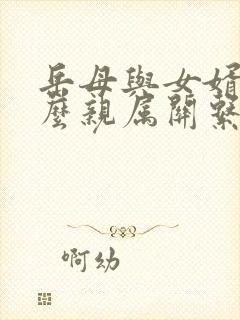 岳母與女婿
麼親属關繫
啊幼